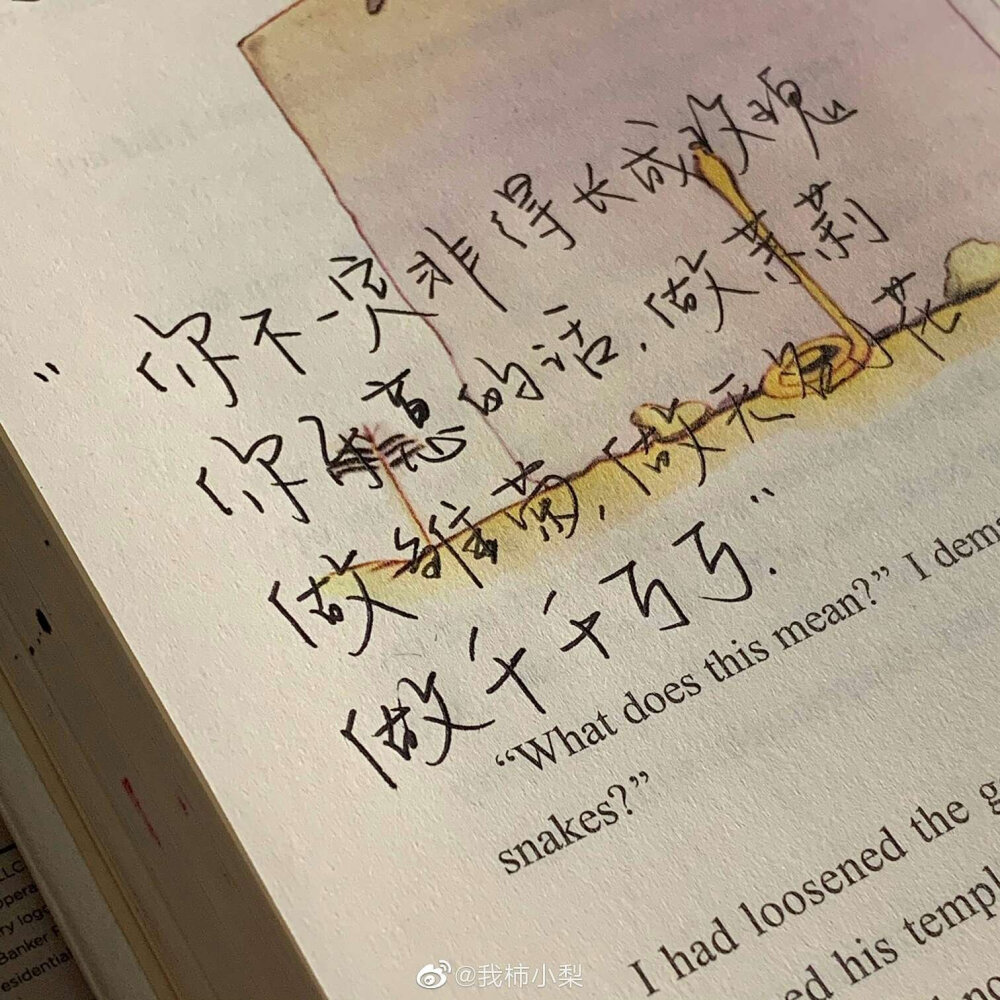 "你不一定非得长成玫瑰
你乐意的话,做茉莉
做雏菊,做无名小花
做千千万万."
"What does this mean?" I dem
snakes?"
I had loosened the g
ed his templ
LLC
opera
ry logo
Banker
esidential
@我柿小梨